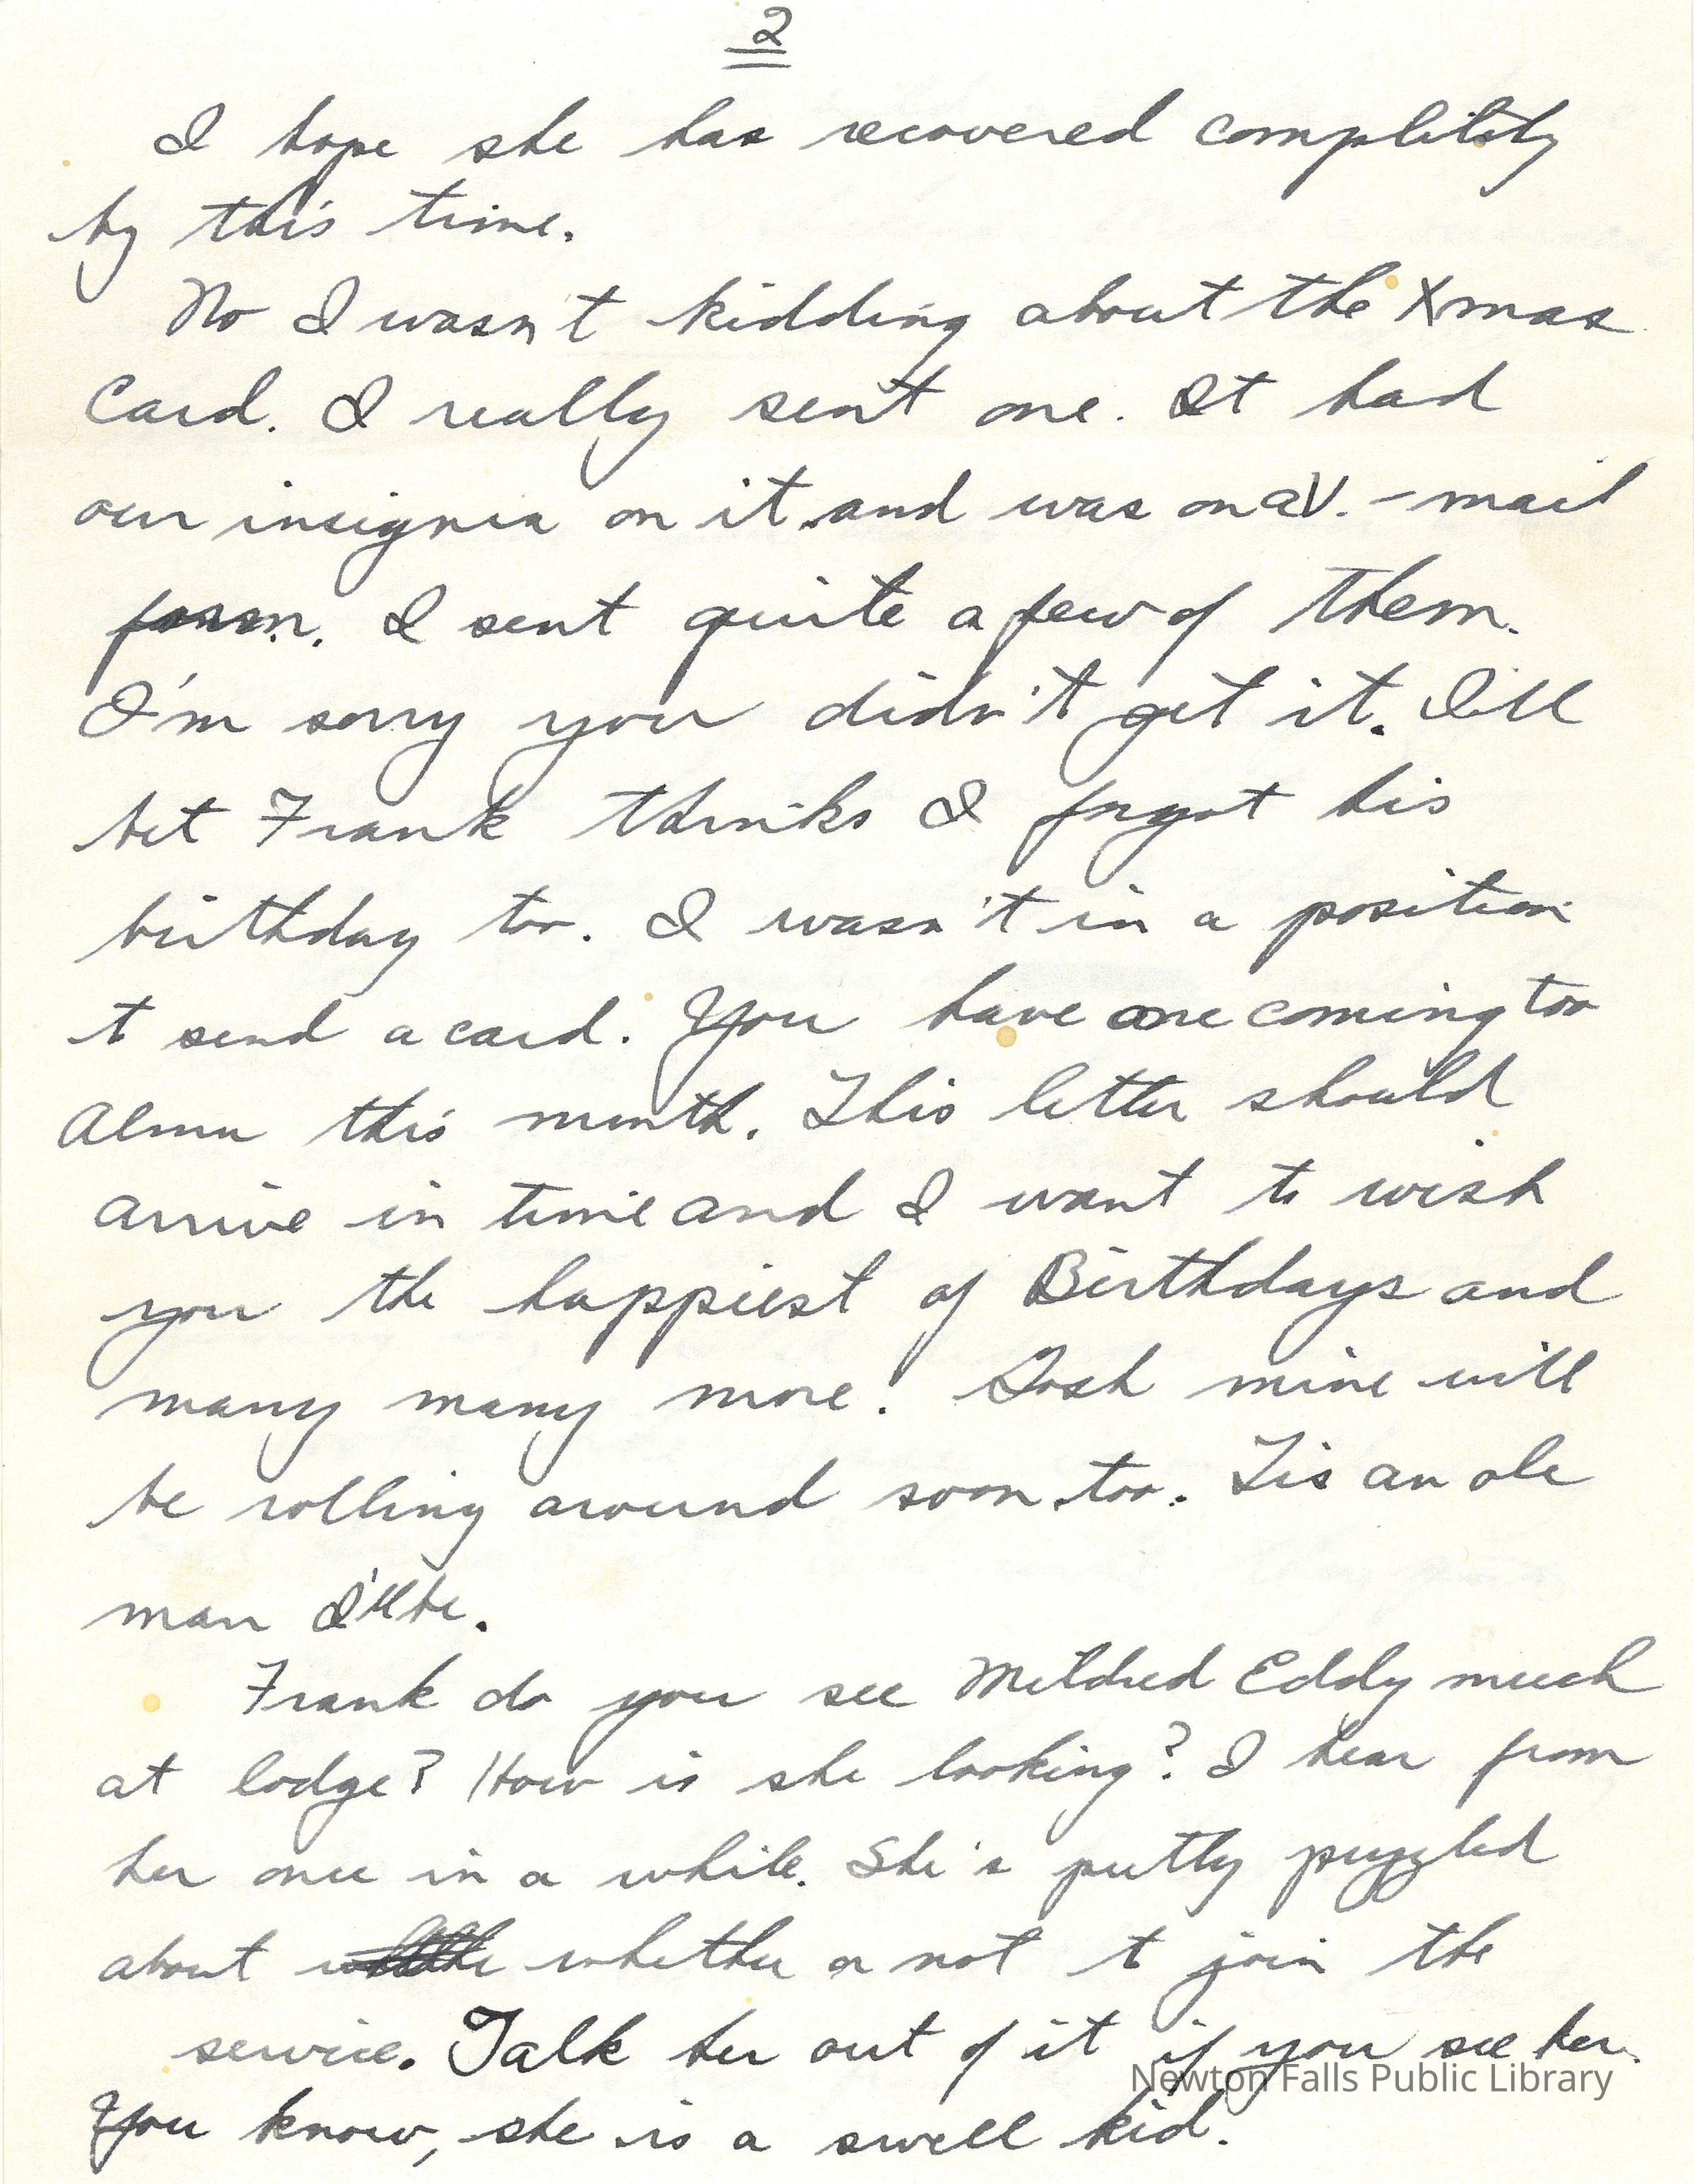 2
I hope she has recovered complitily
by this time.
No I wasn't kidding about the Xmas
Card. I really sent one. It had
our insignia on it and was on a V.-mail
form. I sent quite a few of them.
I'm sorry you didn't get it. I'll
bet Frank thinks I forgot his
birthday too. I wasn't in a position
t send a card. You have one coming too
Alma this month. This letter should
arrive in time and I want to wish
you the happiest of Birthdays and
many many more. Gosh mine will
be rolling around soon too. Tis an ole
man I'll be.
Frank do you see Mildred Eddy much
at lodge? How is she looking? I hear from
her once in a while. She's putty puzzled
about whether or not t join the
service. Talk her out of it if you see her.
Newton Falls Public Library
You know, she is a swell kid.